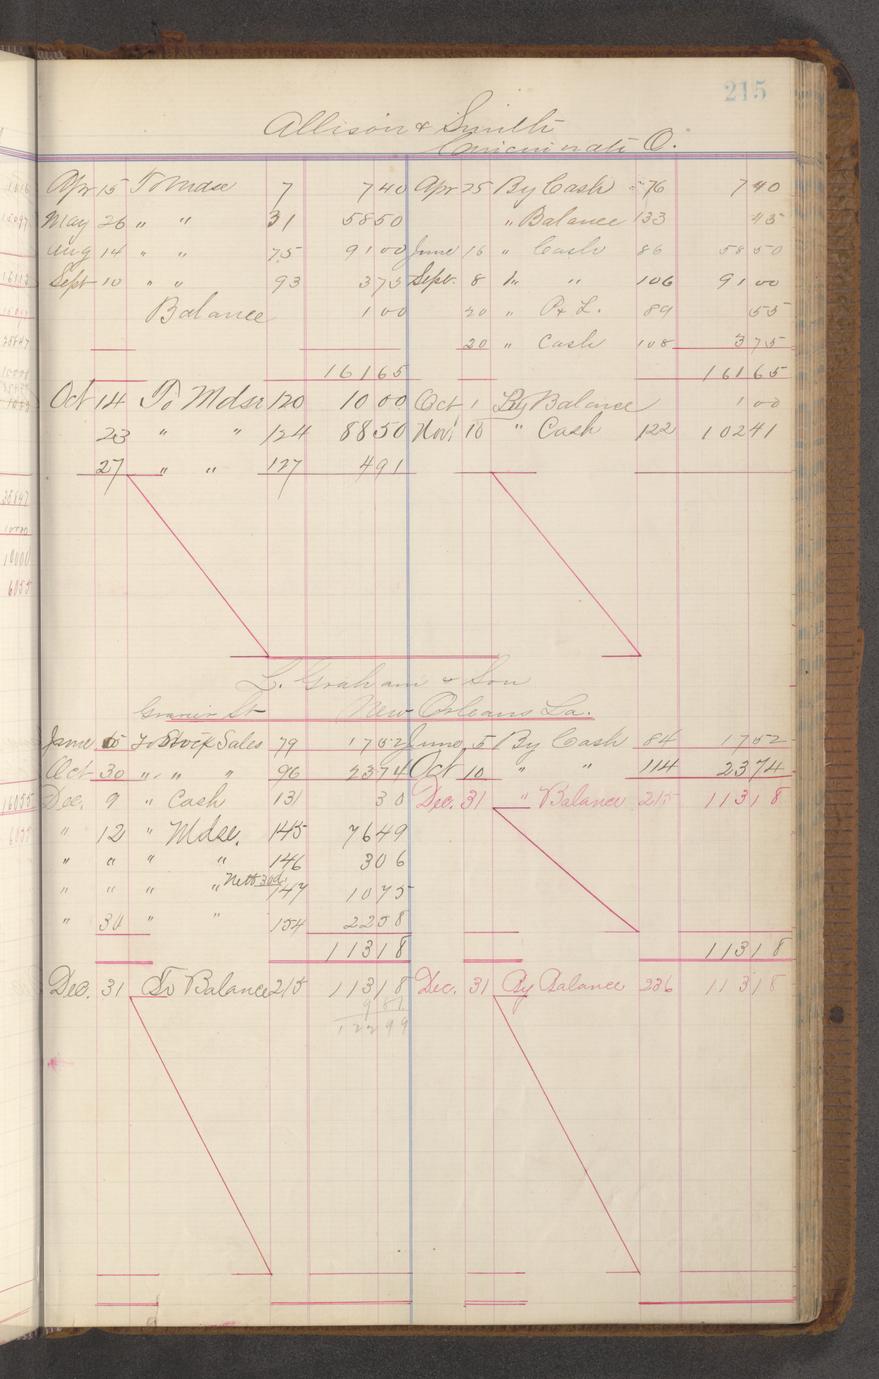 215
Allison & Smith
Cincinnati O.
Apr 15 To Mdse 7 7 40 Apr 25 By Cash 76 7 40
May 26 " " 31 58 50 " Balance 133 45
Aug 14 " " 75 91 00 June 16 " Cash 86 58 50
Sept 10 " " 93 3 75 Sept. 8 " " 106 91 00
Balance 1 00 20 " P & L. 89 55
20 " Cash 108 3 75
161 65 161 65
Oct 14 To Mdse 120 10 00 Oct 1 By Balance 1 00
23 " " 124 88 50 Nov. 10 " Cash 122 102 41
27 " " 127 4 91
L. Graham & Son
Gravier St New Orleans La.
June 5 To Stock Sales 79 17 02 June 5 By Cash 84 17 02
Oct 30 " " " 96 23 74 Oct 10 " " 114 23 74
Dec. 9 " Cash 131 30 Dec. 31 " Balance 215 113 18
" 12 " Mdse. 145 76 49
" " " " 146 3 06
" " " " Nett 30d. 147 10 75
" 30 " " 154 22 58
113 18 113 18
Dec. 31 To Balance 215 113 18 Dec. 31 By Balance 236 113 18
9 81
122 99